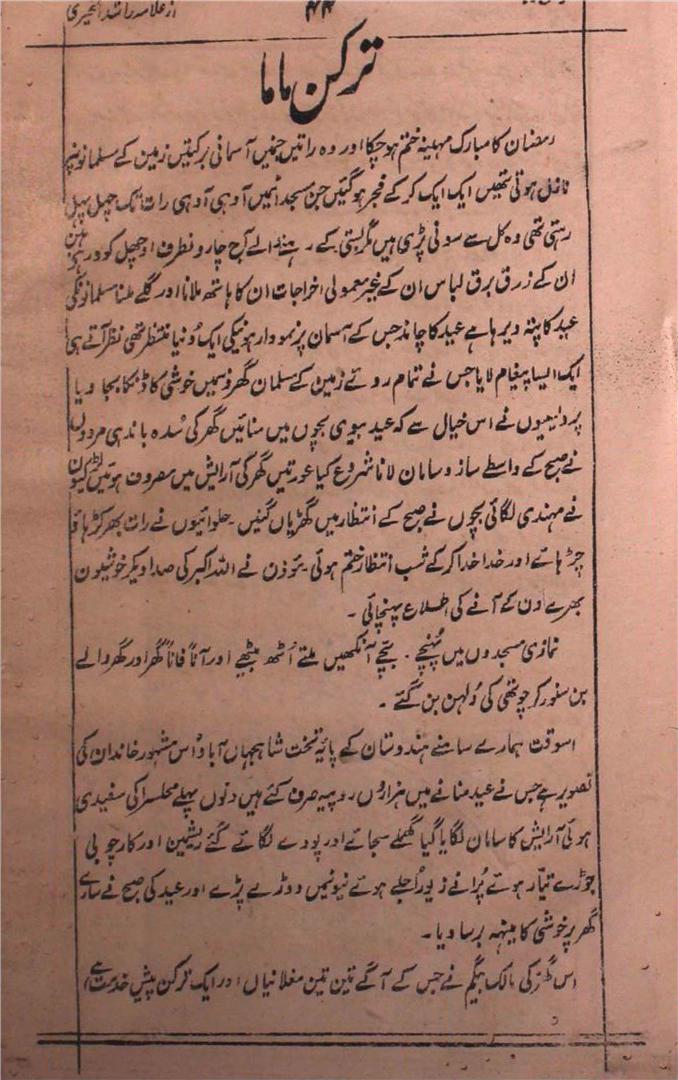 از علامہ راشد الخیری
۴۴
ترکن ماما
رمضان کا مبارک مہینہ ختم ہوچکا اور وہ راتیں جنمیں آسمانی برکتیں زمین کے مسلمانونپر
نازل ہوتی تھیں ایک ایک کرکے فجر ہوگئیں جن مسجدونمیں آدہی آدہی رات تک چہل پہل
رہتی تھی وہ کل سے سونی پڑی ہیں مگر بستی کے رہنے والے آج چارونطرف اوچھل کود رہے ہیں
ان کے زرق برق لباس ان کے غیر معمولی اخراجات ان کا ہاتھ ملانا اور گلے ملنا مسلمانونکی
عید کا پتہ دیر ہا ہے عید کا چاند جس کے آسمان پر نمودار ہونیکی ایک دُنیا منتظر تھی نظر آتے ہی
ایک ایسا پیغام لایا جس نے تمام روئے زمین کے مسلمان گھرونمیں خوشی کا ڈنکا بجا دیا
پردیسیوں نے اس خیال سے کہ عید بیوی بچوں میں منائیں گھر کی سُدہ باندہی مردوں
نے صبح کے واسطے ساز و سامان لانا شروع کیا عورتیں گھر کی آرایش میں مصروف ہوئیں لڑکیوں
نے مہندی لگائی بچوں نے صبح کے انتظار میں گھڑیاں گنیں حلوائیوں نے رات بھر کڑہاؤ
چڑہائے اور خدا خدا کرکے شب انتظار ختم ہوئی مؤذن نے اللہ اکبر کی صدا دیکر خوشیوں
بھرے دن کے آنے کی اطلاع پہنچائی ۔
نمازی مسجدوں میں پہنچے ۔ بچے آنکھیں ملتے اُٹھ بیٹھے اور آناً فاناً گھر اور گھر والے
بن سنور کر چوتھی کی دُلہن بن گئے ۔
اسوقت ہمارے سامنے ہندوستان کے پایۂ تخت شاہجہاں آباد اُس مشہور خاندان کی
تصویر ہے جس نے عید منانے میں ہزاروں روپیہ صرف کئے ہیں دنوں پہلے محلسرا کی سفیدی
ہوئی آرایش کا سامان لگایا گیا گملے سجائے اور پودے لگائے گئے ریشمین اور کارچوبی
جوڑے تیار ہوئے پُرانے زیور اُجلے ہوئے نیونمیں ڈورے پڑے اور عید کی صبح نے سارے
گھر پر خوشی کا مینہہ برسا دیا ۔
اس گھر کی مالک بیگم نے جس کے آگے تین تین مغلانیاں اور ایک ترکن پیش خدمت ہے،